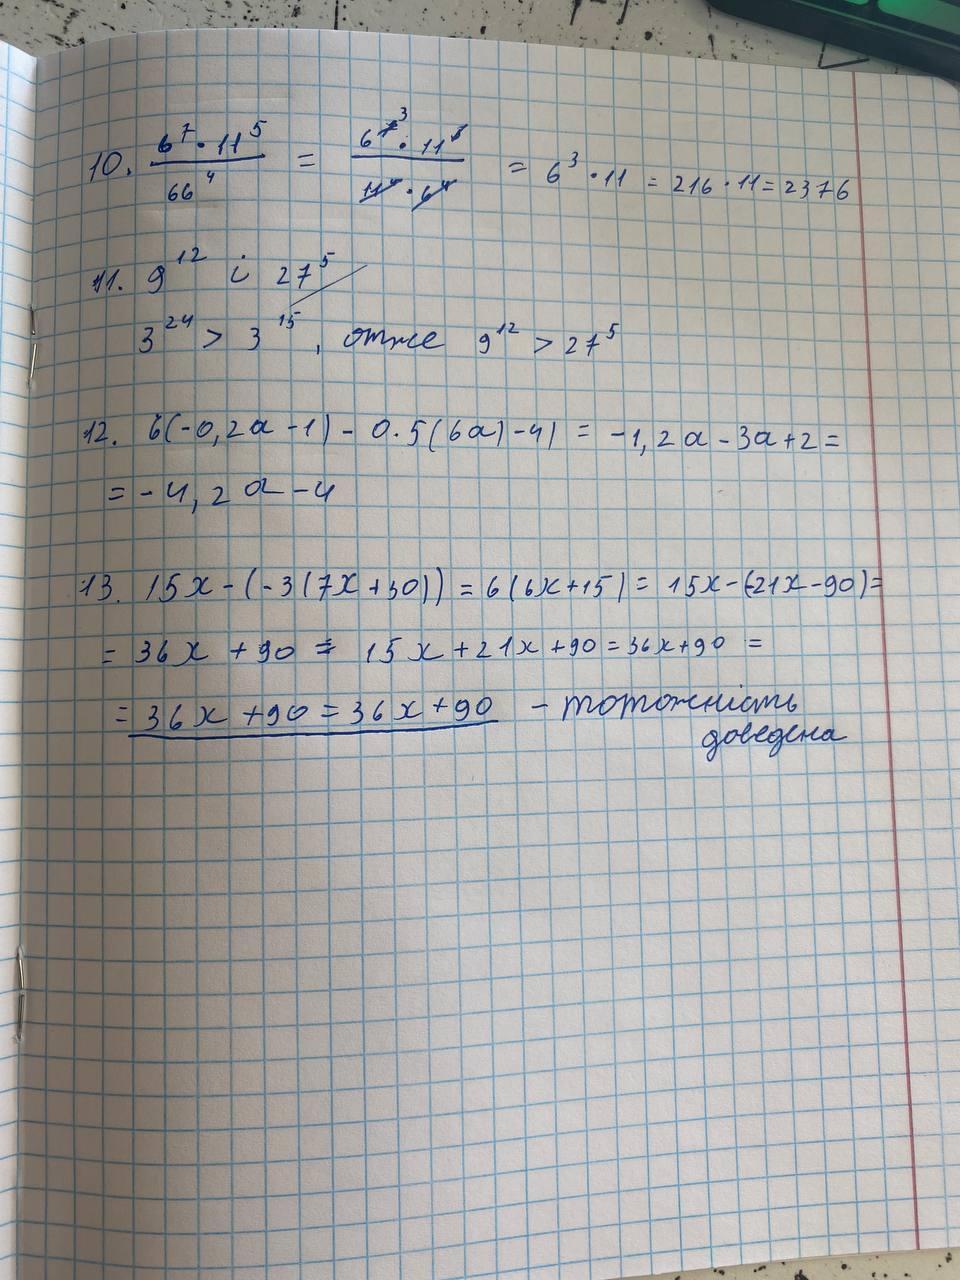 10. 6^7 · 11^5 / 66^4 = 6^7 3 · 11^5 / 11^4 · 6^4 = 6^3 · 11 = 216 · 11 = 2376
11. 9^12 і 27^5
3^24 > 3^15, отже 9^12 > 27^5
12. 6(-0,2a - 1) - 0.5(6a) - 4) = -1,2a - 3a + 2 =
= -4,2a - 4
13. 15x - (-3(7x + 30)) = 6(6x + 15) = 15x - (-21x - 90) =
= 36x + 90 = 15x + 21x + 90 = 36x + 90 =
= 36x + 90 = 36x + 90 - тотожність
доведена